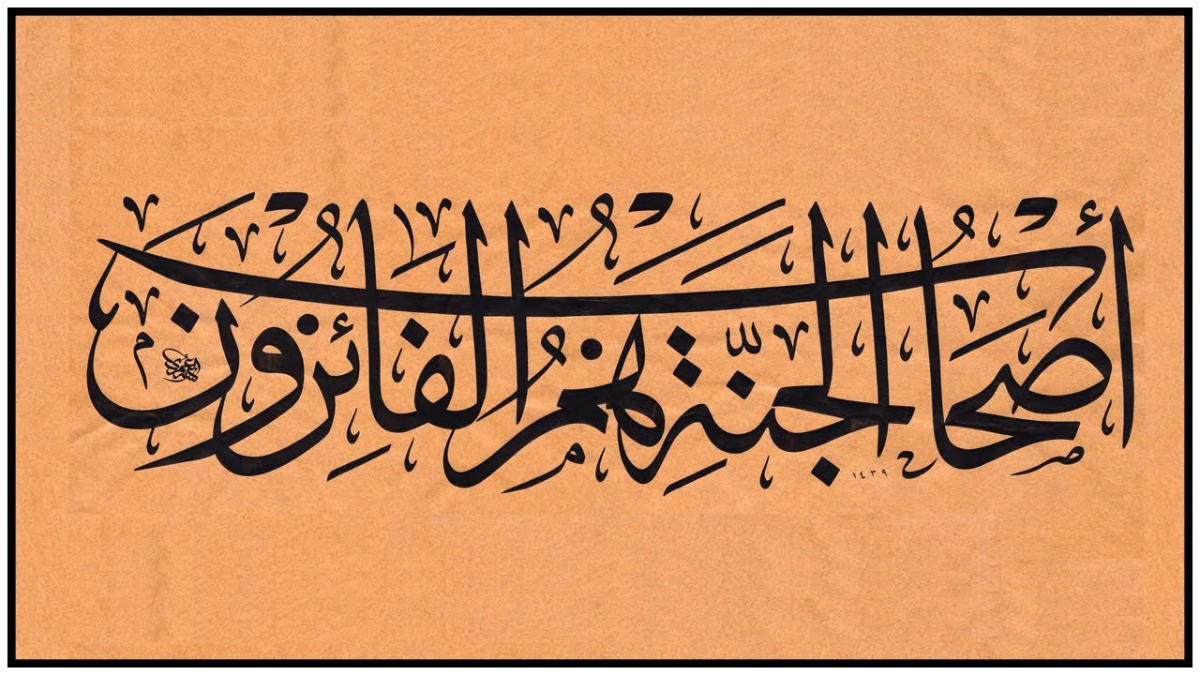 أصحاب الجنّة هم الفائزون
١٤٣٩